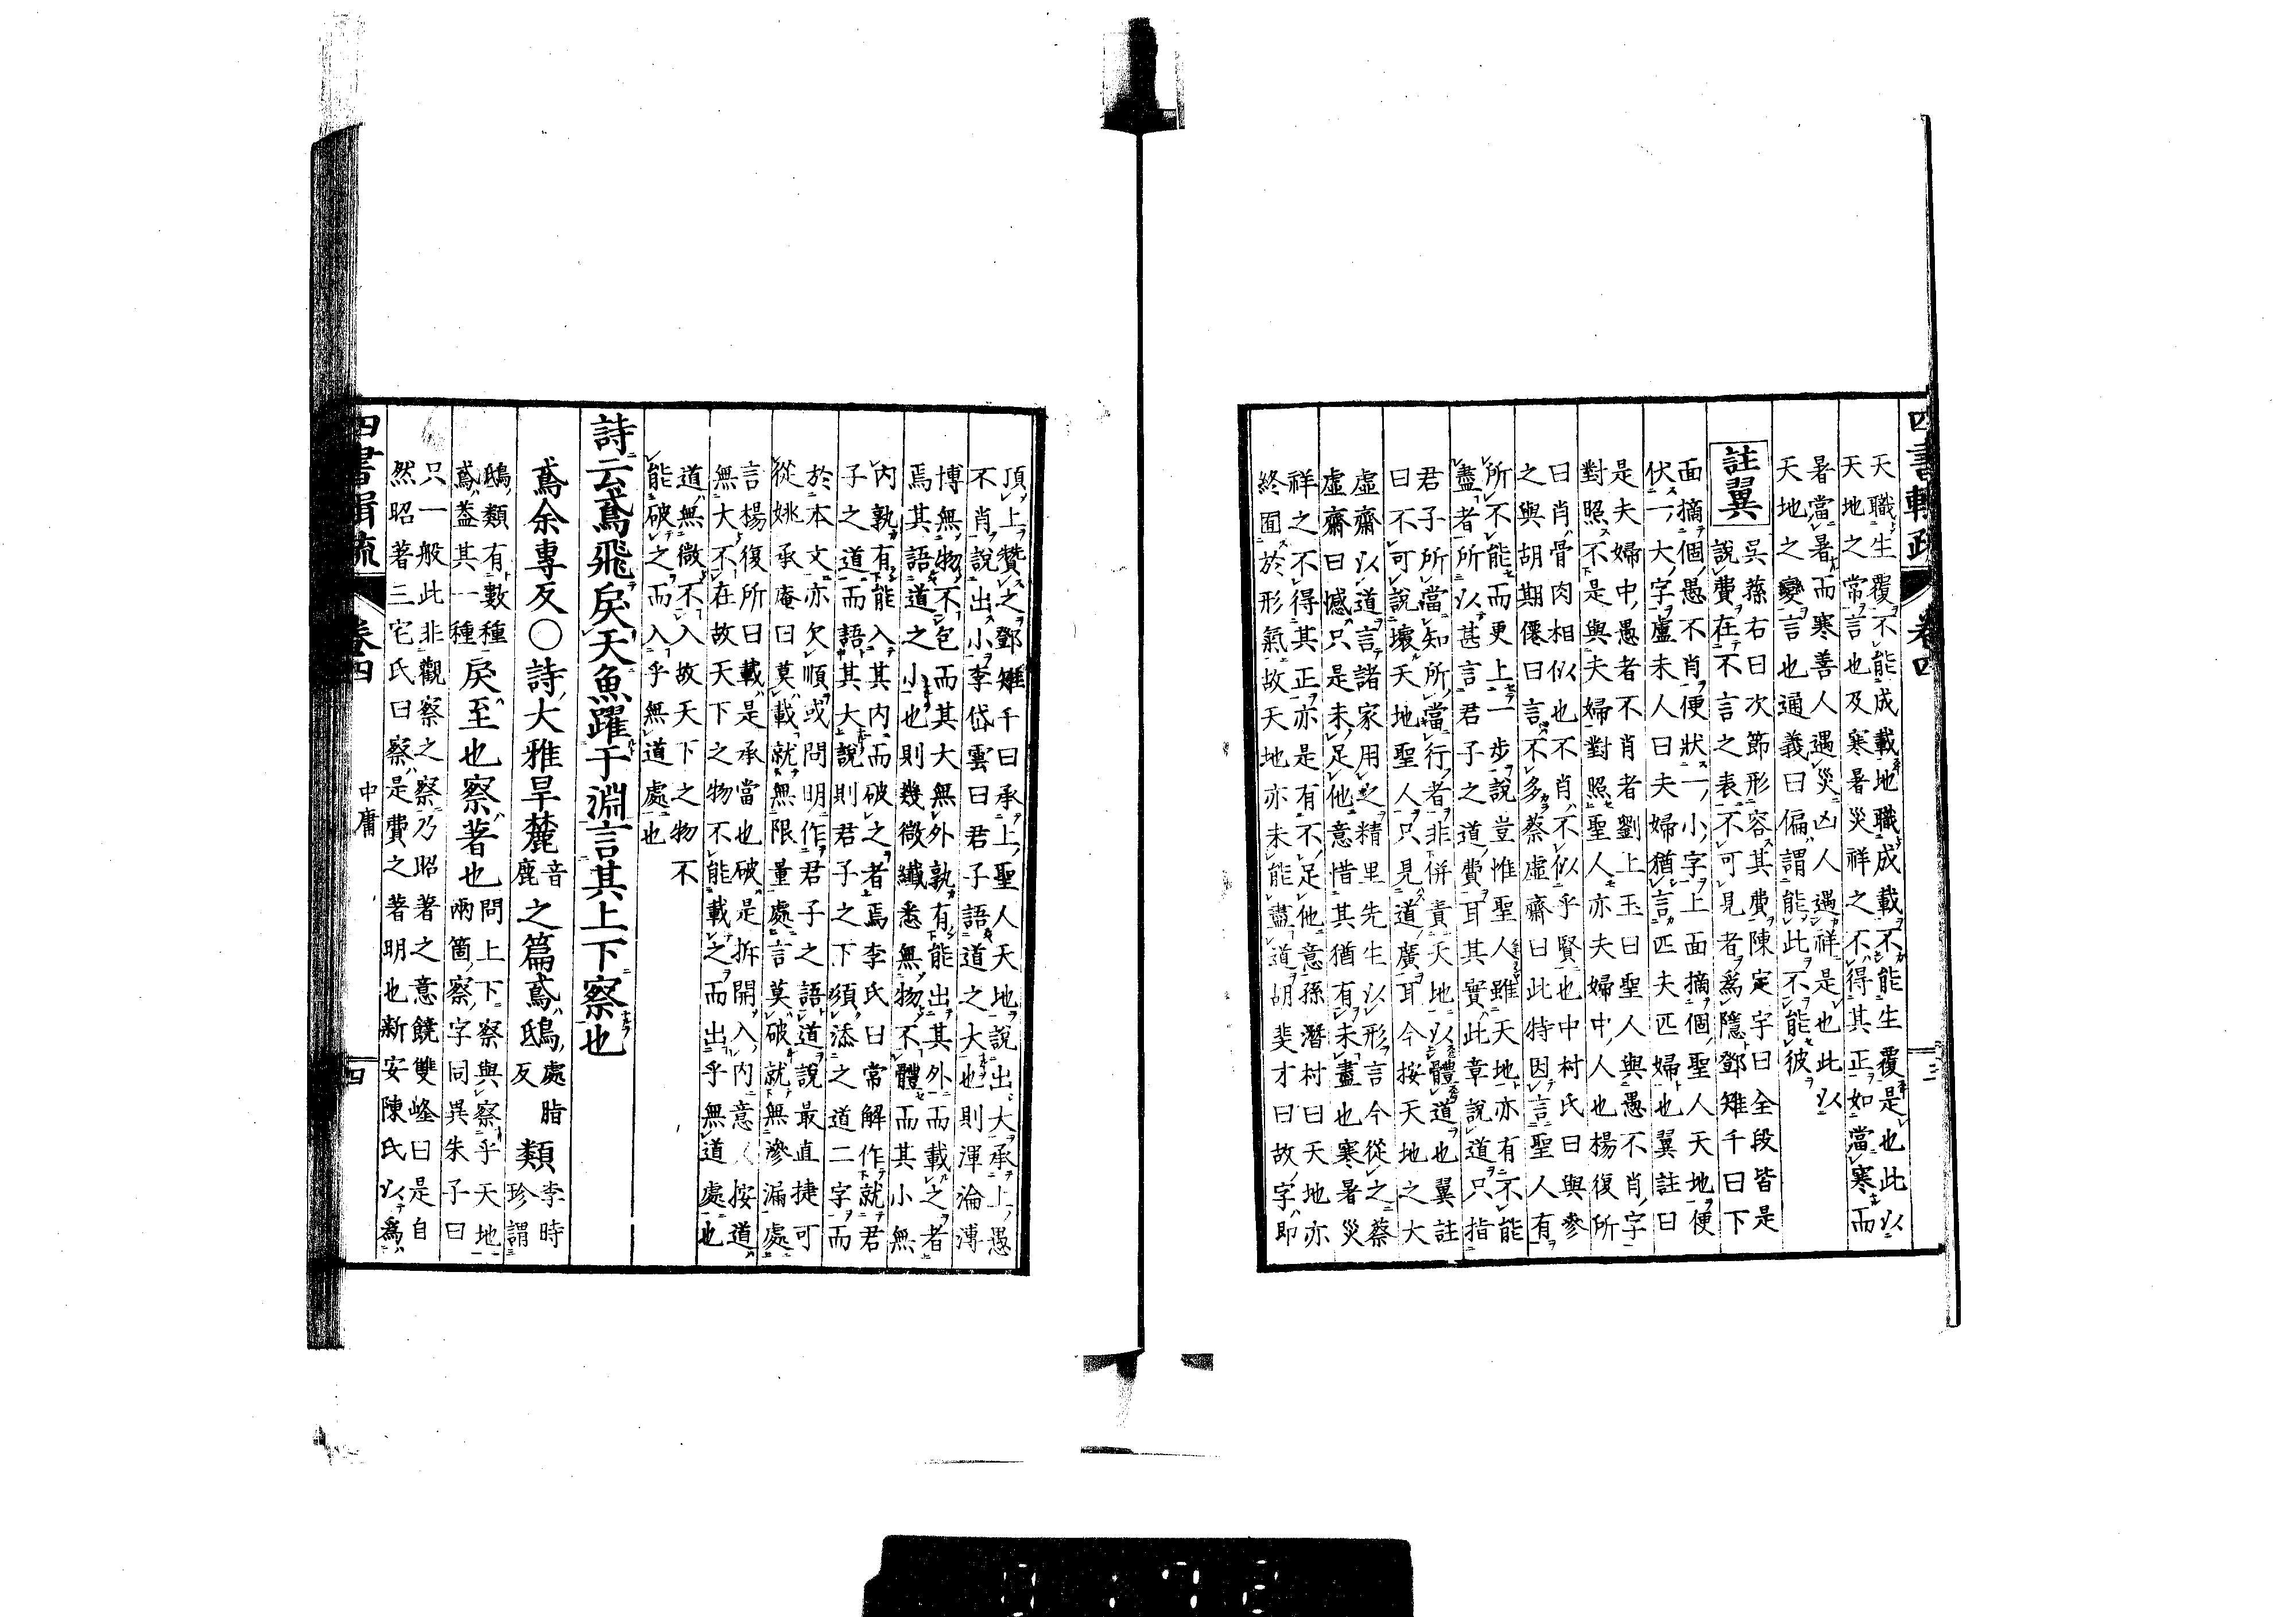 四書輯疏 卷四 三
天職生覆不能成載地職成載不能生覆是也此以
天地之常言也及寒暑災祥之不得其正如當寒而
暑當暑而寒善人遇災凶人遇祥是也此以
天地之變言也通義曰偏謂能此不能彼
註翼
吳蓀右曰次節形容其費陳定宇曰全段皆是
說費在不言之表不可見者爲隱鄧雉千曰下
面摘個愚不肖便狀一小字上面摘個聖人天地便
伏一大字盧未人曰夫婦猶言匹夫匹婦也翼註曰
是夫婦中愚者不肖者劉上玉曰聖人與愚不肖字
對照不是與夫婦對照聖人亦夫婦中人也楊復所
曰肖骨肉相似也不肖不似乎賢也中村氏曰與參
之與胡期僊曰言不多蔡虛齋曰此特因言聖人有
所不能而更上一步說豈惟聖人雖天地亦有不能
盡者所以甚言君子之道費耳其實此章說道只指
君子所當知所當行者非併責天地以體道也翼註
曰不可說壞天地聖人只見道廣耳今按天地之大
虛齋以道言諸家用之精里先生以形言今從之蔡
虛齋曰憾只是未足他意惜其猶有未盡也寒暑災
祥之不得其正亦是有不足他意孫潛村曰天地亦
終囿於形氣故天地亦未能盡道胡斐才曰故字即
頂上贊之鄧雉千曰承上聖人天地說出大承上愚
不肖說出小李岱雲曰君子語道之大也則渾淪溥
博無物不包而其大無外孰有能出其外而載之者
焉其語道之小也則幾微纖悉無物不體而其小無
內孰有能入其內而破之者焉李氏曰常解作就君
子之道而語其大說則君子之下須添之道二字而
於本文亦欠順或問明作君子之語道說最直捷可
從姚承庵曰莫載就無限量處言莫破就無滲漏處
言楊復所曰載是承當也破是拆開入內意按道
無大不在故天下之物不能載之而出乎無道處也
道無微不入故天下之物不
能破之而入乎無道處也
詩云鳶飛戾天魚躍于淵言其上下察也
鳶余專反○詩大雅旱麓音鹿之篇鳶鴟處脂反類李時珍謂
鴟類有數種
鳶蓋其一種戾至也察著也問上下察與察乎天地
兩箇察字同異朱子曰
只一般此非觀察之察乃昭著之意饒雙峰曰是自
然昭著三宅氏曰察是費之著明也新安陳氏以爲
四書輯疏 卷四 中庸 四